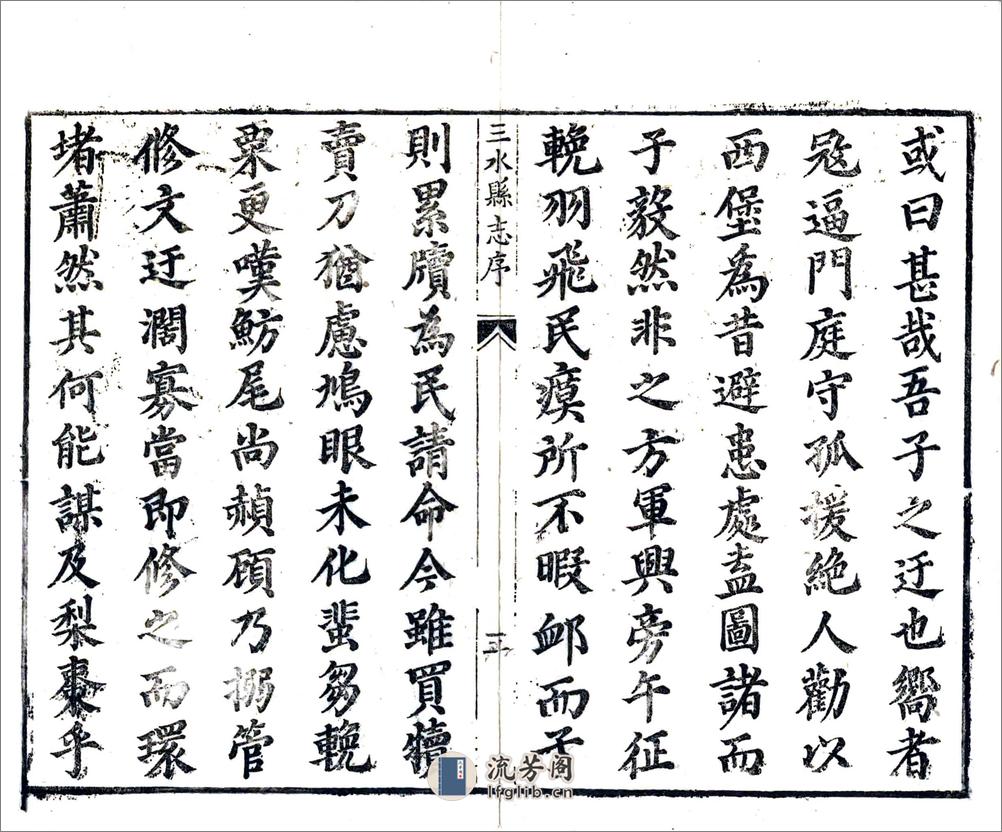 或曰甚哉吾子之迂也嚮者
冦逼門庭守孤援絶人勸以
西堡為昔避患處盍圖諸而
子毅然非之方軍興旁午征
輓羽飛民瘼所不暇衈而子
三水縣志序
則累牘為民請命今雖買犢
賣刀猶慮鳩眼未化蜚芻輓
粟更嘆魴尾尚赬頎乃搦管
修文迂濶寡當即修之而環
堵蕭然其何能謀及梨棗乎
流芳阁
lfglib.cn